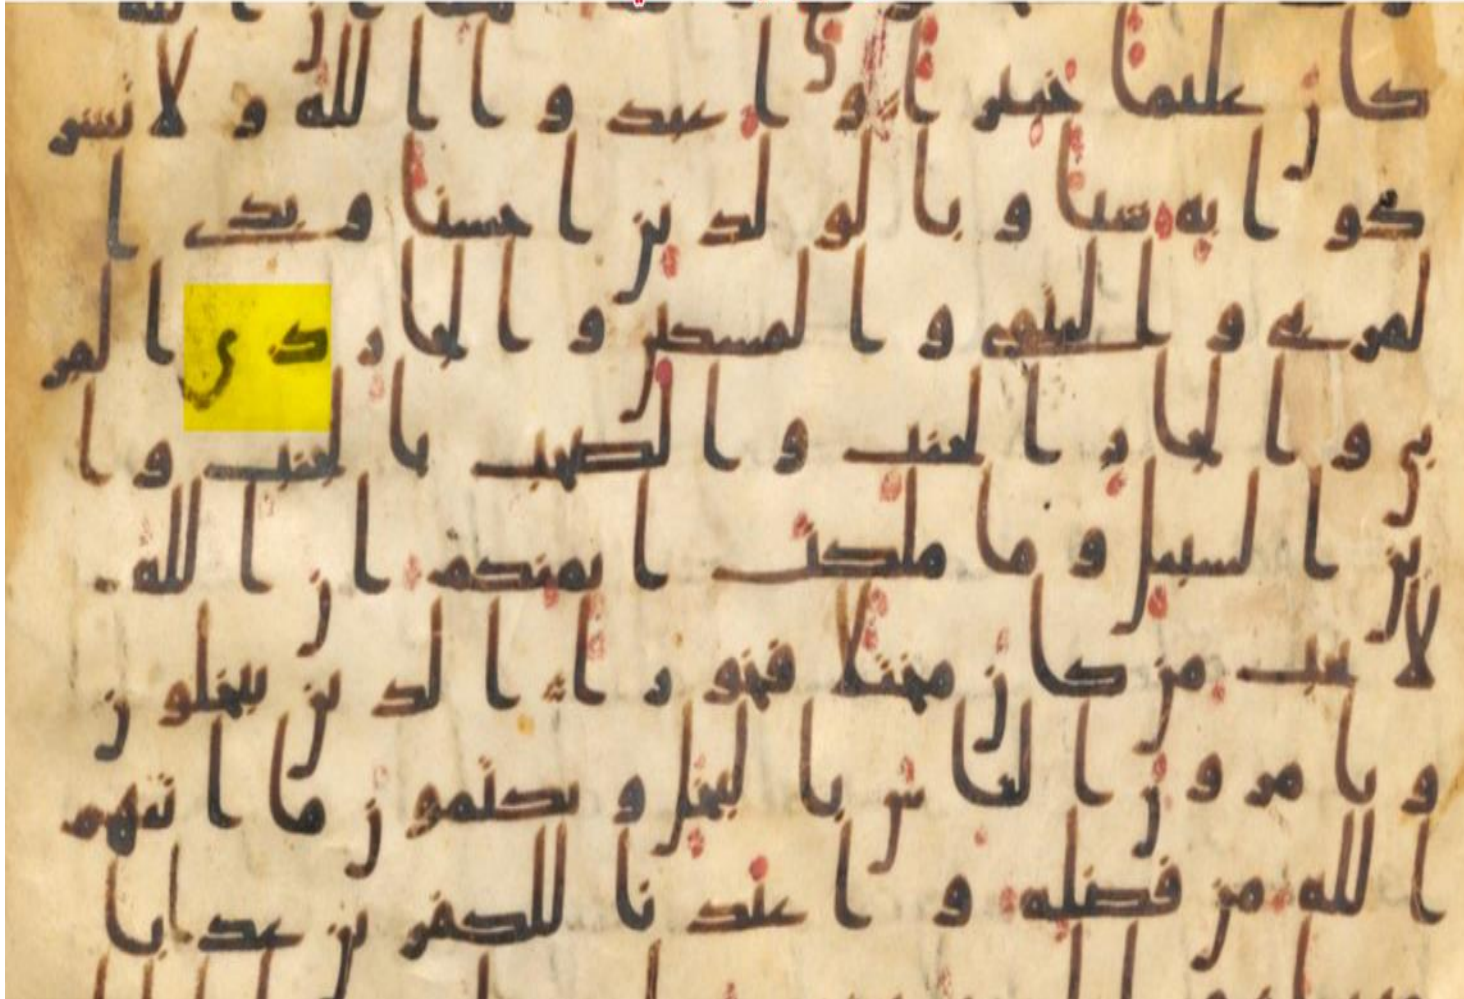 كان عليما خبيرا واعبدوا الله ولا تشر
كوا به شيا وبالولدين احسنا وبذى ا
لقربى واليتمى والمسكين والجار ذى القر
بى والجار الجنب والصحب بالجنب وا
بن السبيل وما ملكت ايمنكم ان الله
لا يحب من كان مختلا فخورا الذين يبخلون
ويامرون الناس بالبخل ويكتمون ما اتيهم
الله من فضله واعتدنا للكفرين عذابا